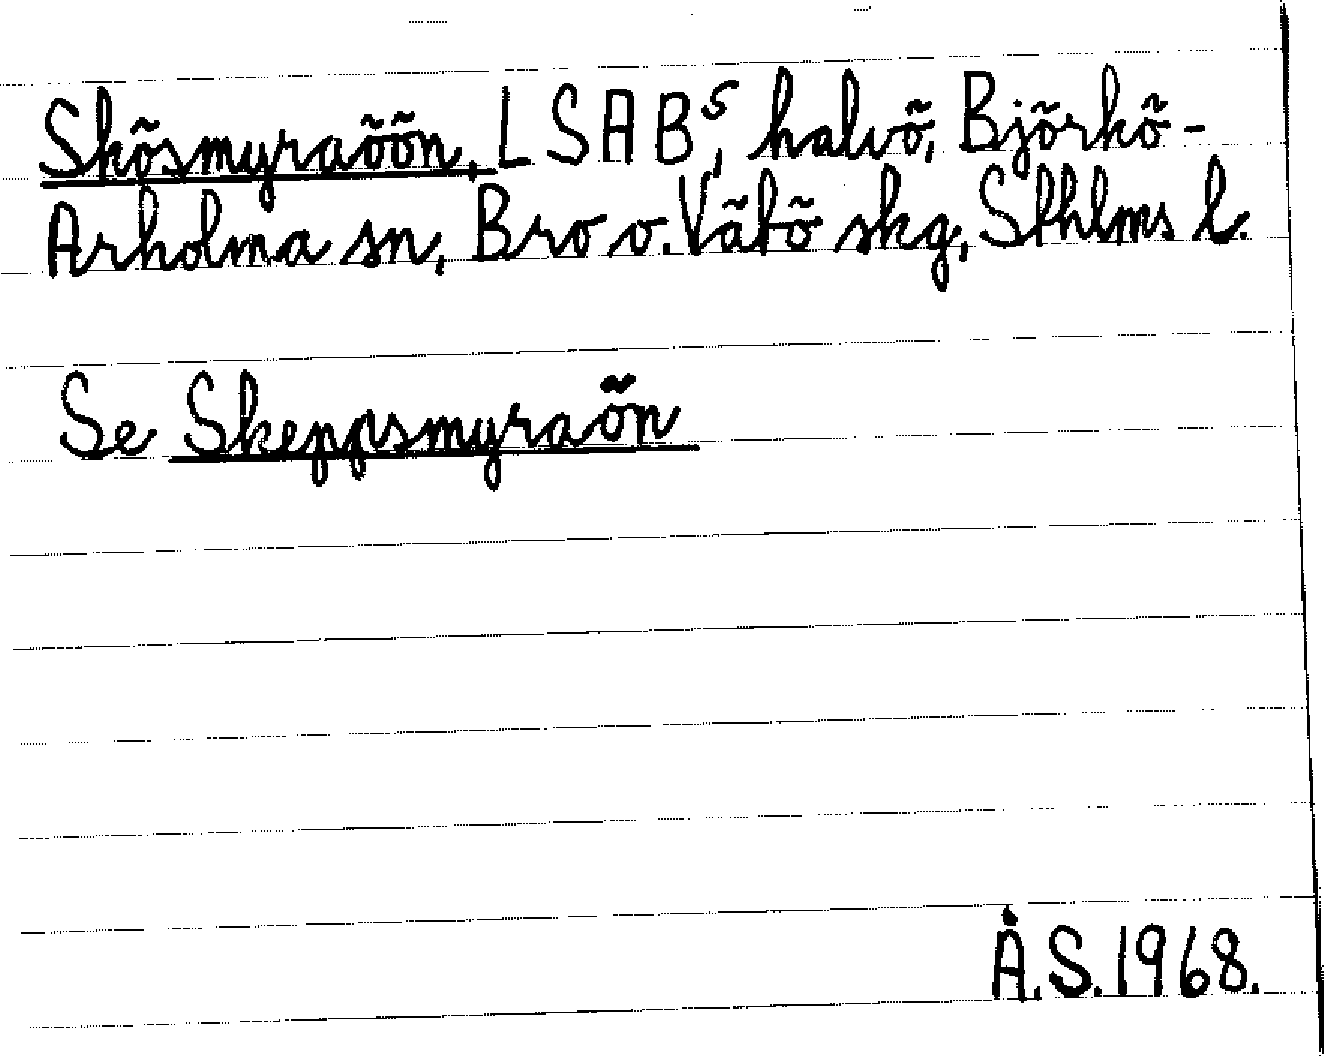 Skösmyraöön, LSAB⁵, halvö, Björkö-
Arholma sn, Bro o. Vätö skg, Sthlms l.
Se Skeppsmyraön
Å.S. 1968.